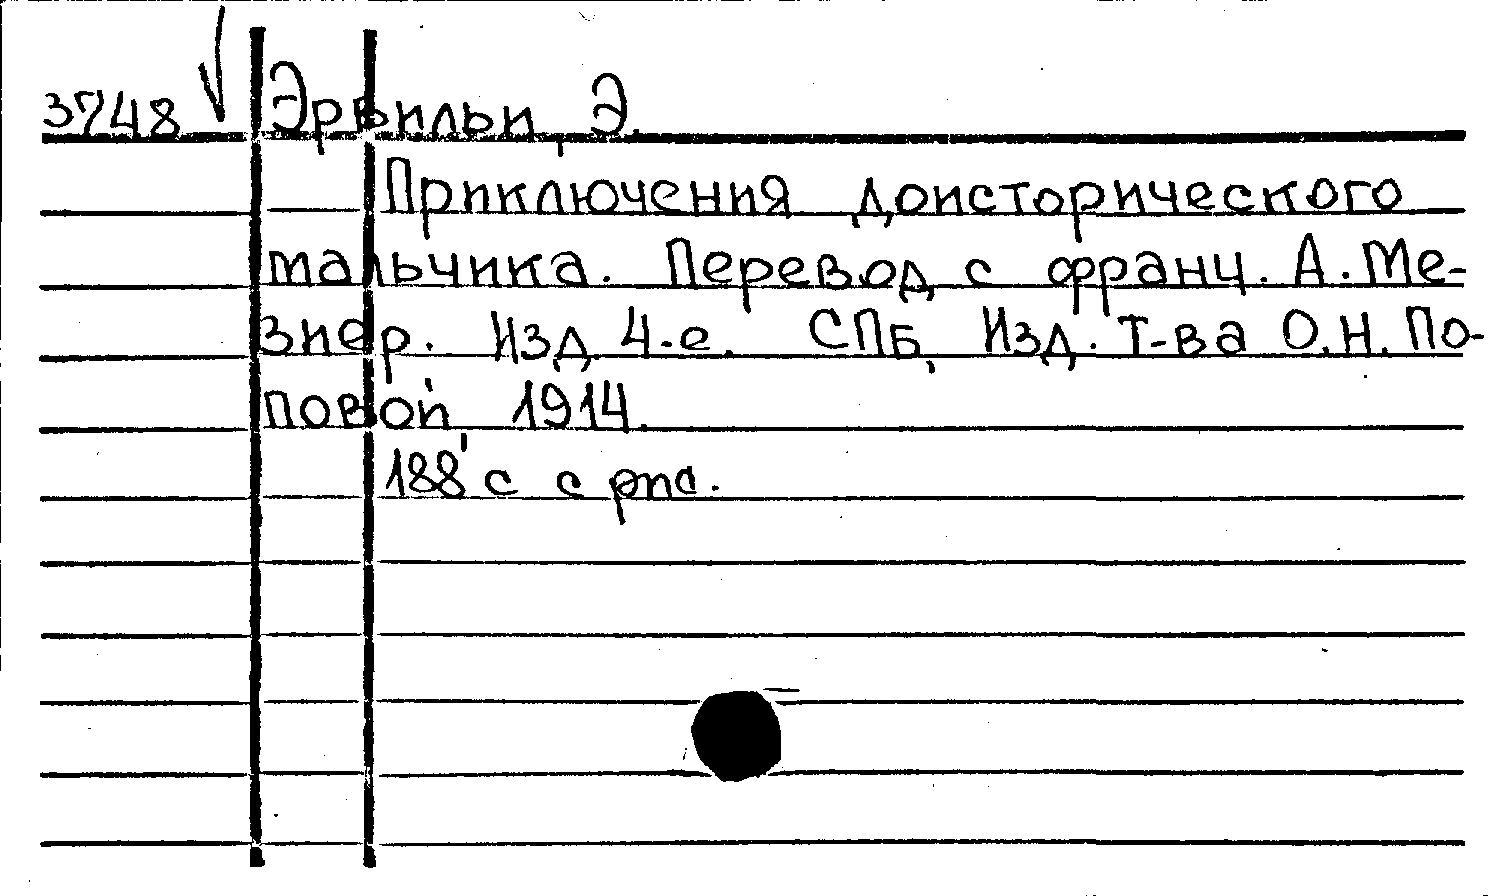 3748 Эрвильи, Э.
Приключения доисторического
мальчика. Перевод с франц. А. Ме-
зиер. Изд. 4-е. СПБ, Изд. Т-ва О.Н. По-
повой, 1914.
188 с с рис.